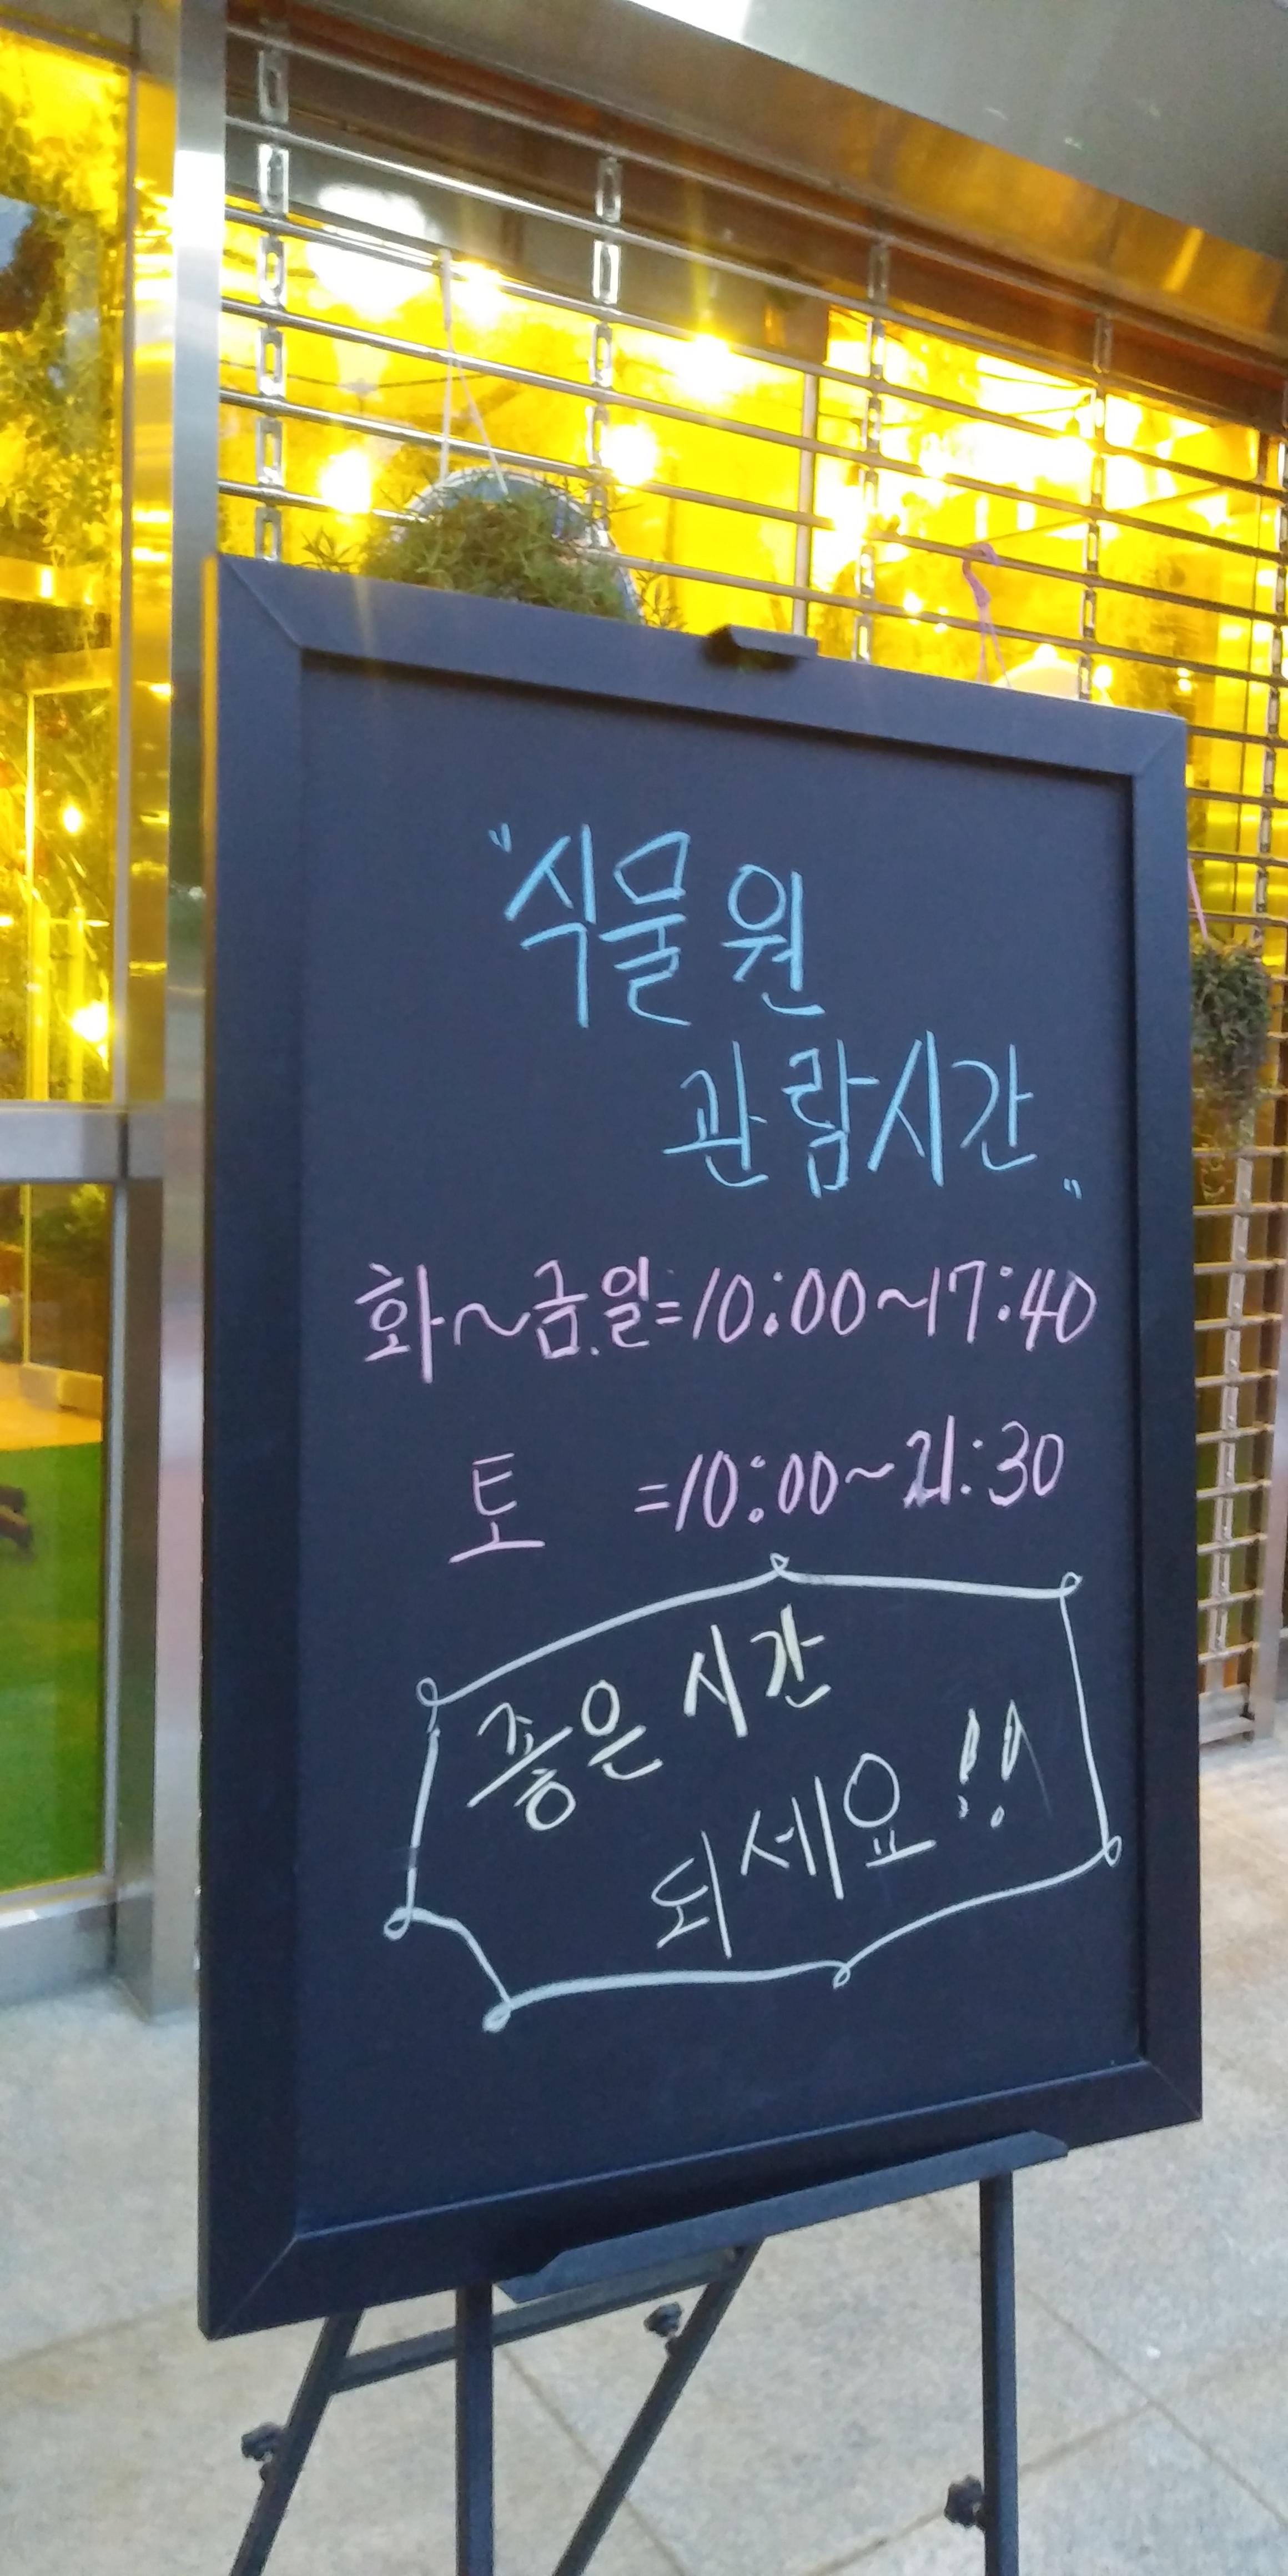 "식물원
관람시간"
화~금.일=10:00~17:40
토 =10:00~21:30
좋은 시간
되세요!!